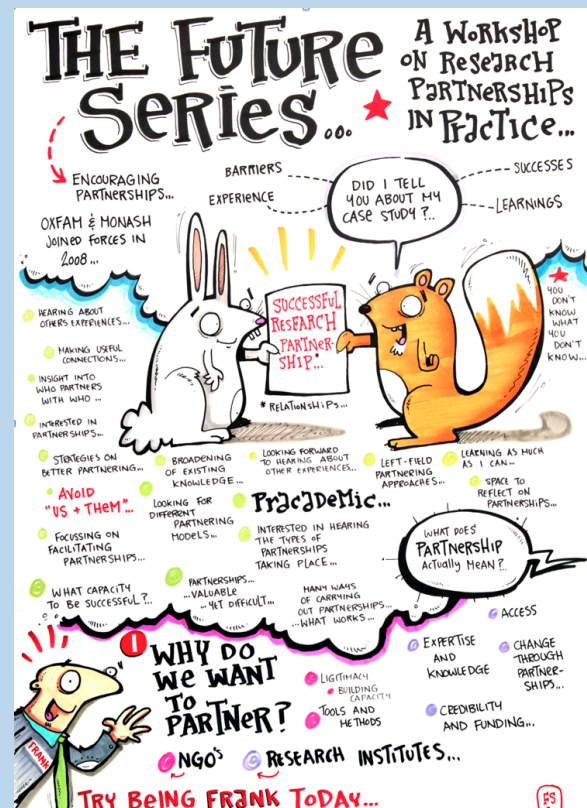 THE FUTURE
SERIES...
A WORKSHOP
ON RESEARCH
PARTNERSHIPS
IN PRACTICE...
ENCOURAGING
PARTNERSHIPS...
OXFAM & MONASH
JOINED FORCES IN
2008...
BARRIERS
EXPERIENCE
DID I TELL
YOU ABOUT MY
CASE STUDY?...
SUCCESSES
LEARNINGS
SUCCESSFUL
RESEARCH
PARTNER-
SHIP...*
* RELATIONSHIPS...
YOU
DON'T
KNOW
WHAT
YOU
DON'T
KNOW...
HEARING ABOUT
OTHERS EXPERIENCES...
MAKING USEFUL
CONNECTIONS...
INSIGHT INTO
WHO PARTNERS
WITH WHO...
INTERESTED IN
PARTNERSHIPS...
STRATEGIES ON
BETTER PARTNERING...
AVOID
"US + THEM"...
FOCUSSING ON
FACILITATING
PARTNERSHIPS...
WHAT CAPACITY
TO BE SUCCESSFUL?...
BROADENING
OF EXISTING
KNOWLEDGE...
LOOKING FOR
DIFFERENT
PARTNERING
MODELS...
PARTNERSHIPS...
...VALUABLE
...YET DIFFICULT...
LOOKING FORWARD
TO HEARING ABOUT
OTHER EXPERIENCES...
PRACADEMIC...
INTERESTED IN HEARING
THE TYPES OF
PARTNERSHIPS
TAKING PLACE...
MANY WAYS
OF CARRYING
OUT PARTNERSHIPS...
...WHAT WORKS...
LEFT-FIELD
PARTNERING
APPROACHES...
LEARNING AS MUCH
AS I CAN...
SPACE TO
REFLECT ON
PARTNERSHIPS...
WHAT DOES
PARTNERSHIP
ACTUALLY MEAN?...
1
WHY DO
WE WANT
TO
PARTNER?
LIGITIMACY
BUILDING
CAPACITY
TOOLS AND
METHODS
ACCESS
EXPERTISE
AND
KNOWLEDGE
CHANGE
THROUGH
PARTNER-
SHIPS...
CREDIBILITY
AND FUNDING...
NGO'S
RESEARCH INSTITUTES...
FRANK
TRY BEING FRANK TODAY...
FS